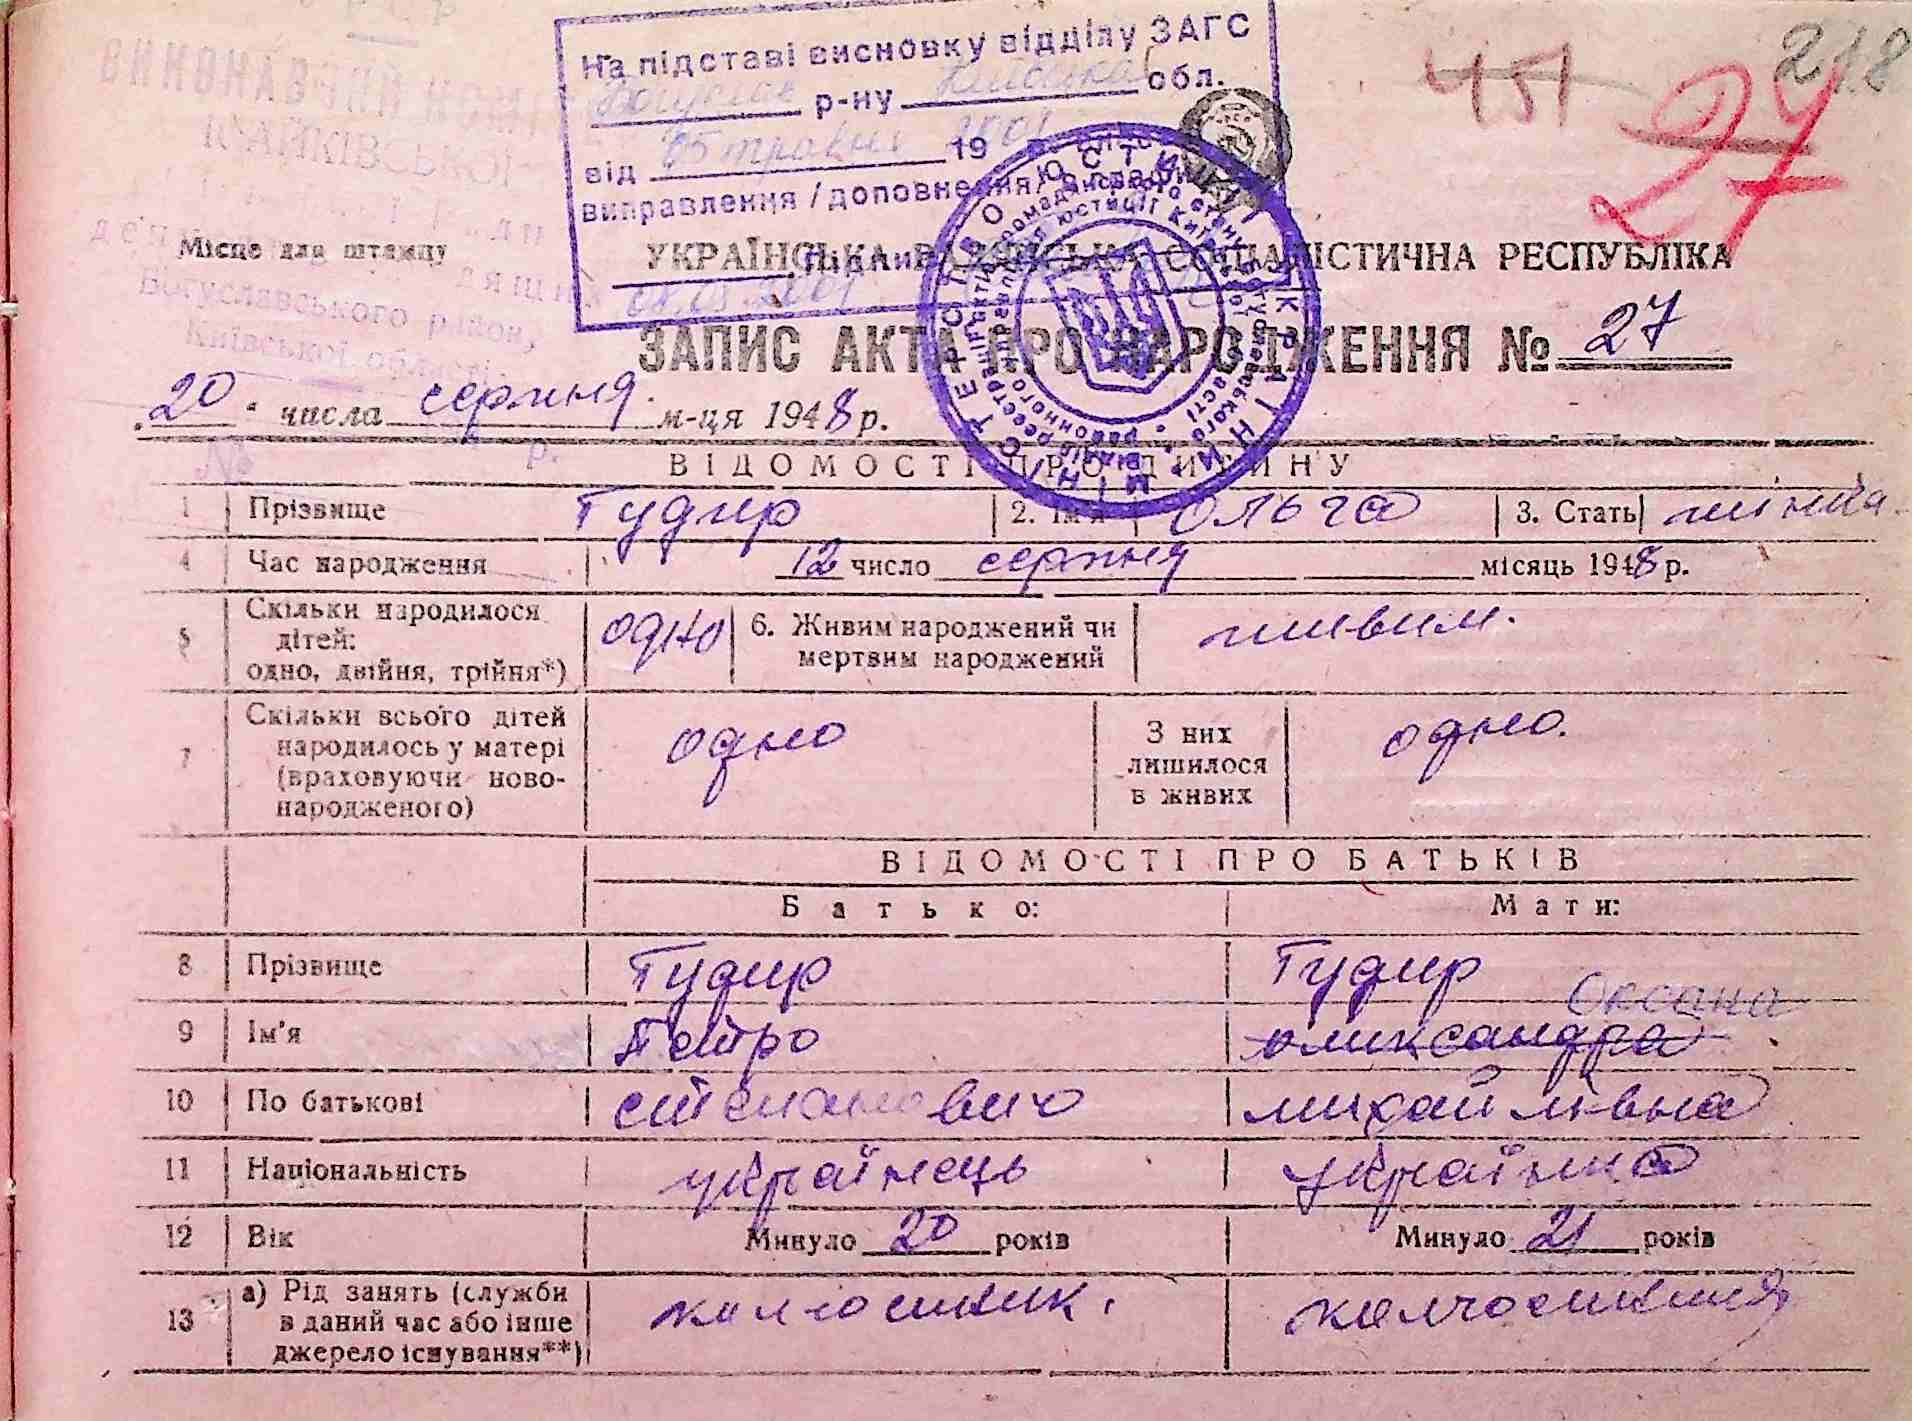 218
451
27
На підставі висновку відділу ЗАГС
р-ну Київська обл.
від 05 травня 2001 19
виправлення / доповнення
Підпис
08.05.2001
ВИКОНАВЧИЙ КОМІ
Богуславського район,
Київської області
Місце для штампу
УКРАЇНСЬКА РАДЯНСЬКА СОЦІАЛІСТИЧНА РЕСПУБЛІКА
ЗАПИС АКТА ПРО НАРОДЖЕННЯ № 27
20 " числа серпня м-ця 1948 р.
№ р.
ВІДОМОСТІ ПРО ДИТИНУ
1 Прізвище Гудир 2. Ім'я Ольга 3. Стать жіноча
4 Час народження 12 число серпня місяць 1948 р.
5 Скільки народилося дітей: одно, двійня, трійня*) одно 6. Живим народжений чи мертвим народжений живим.
7 Скільки всього дітей народилось у матері (враховуючи ново-народженого) одно З них лишилося в живих одно.
ВІДОМОСТІ ПРО БАТЬКІВ
Батько: Мати:
8 Прізвище Гудир Гудир
Оксана
9 Ім'я Петро олександра
10 По батькові степанович михайлівна
11 Національність українець українка
12 Вік Минуло 20 років Минуло 21 років
13 а) Рід занять (служби в даний час або інше джерело існування**) колгоспник. колгоспниця